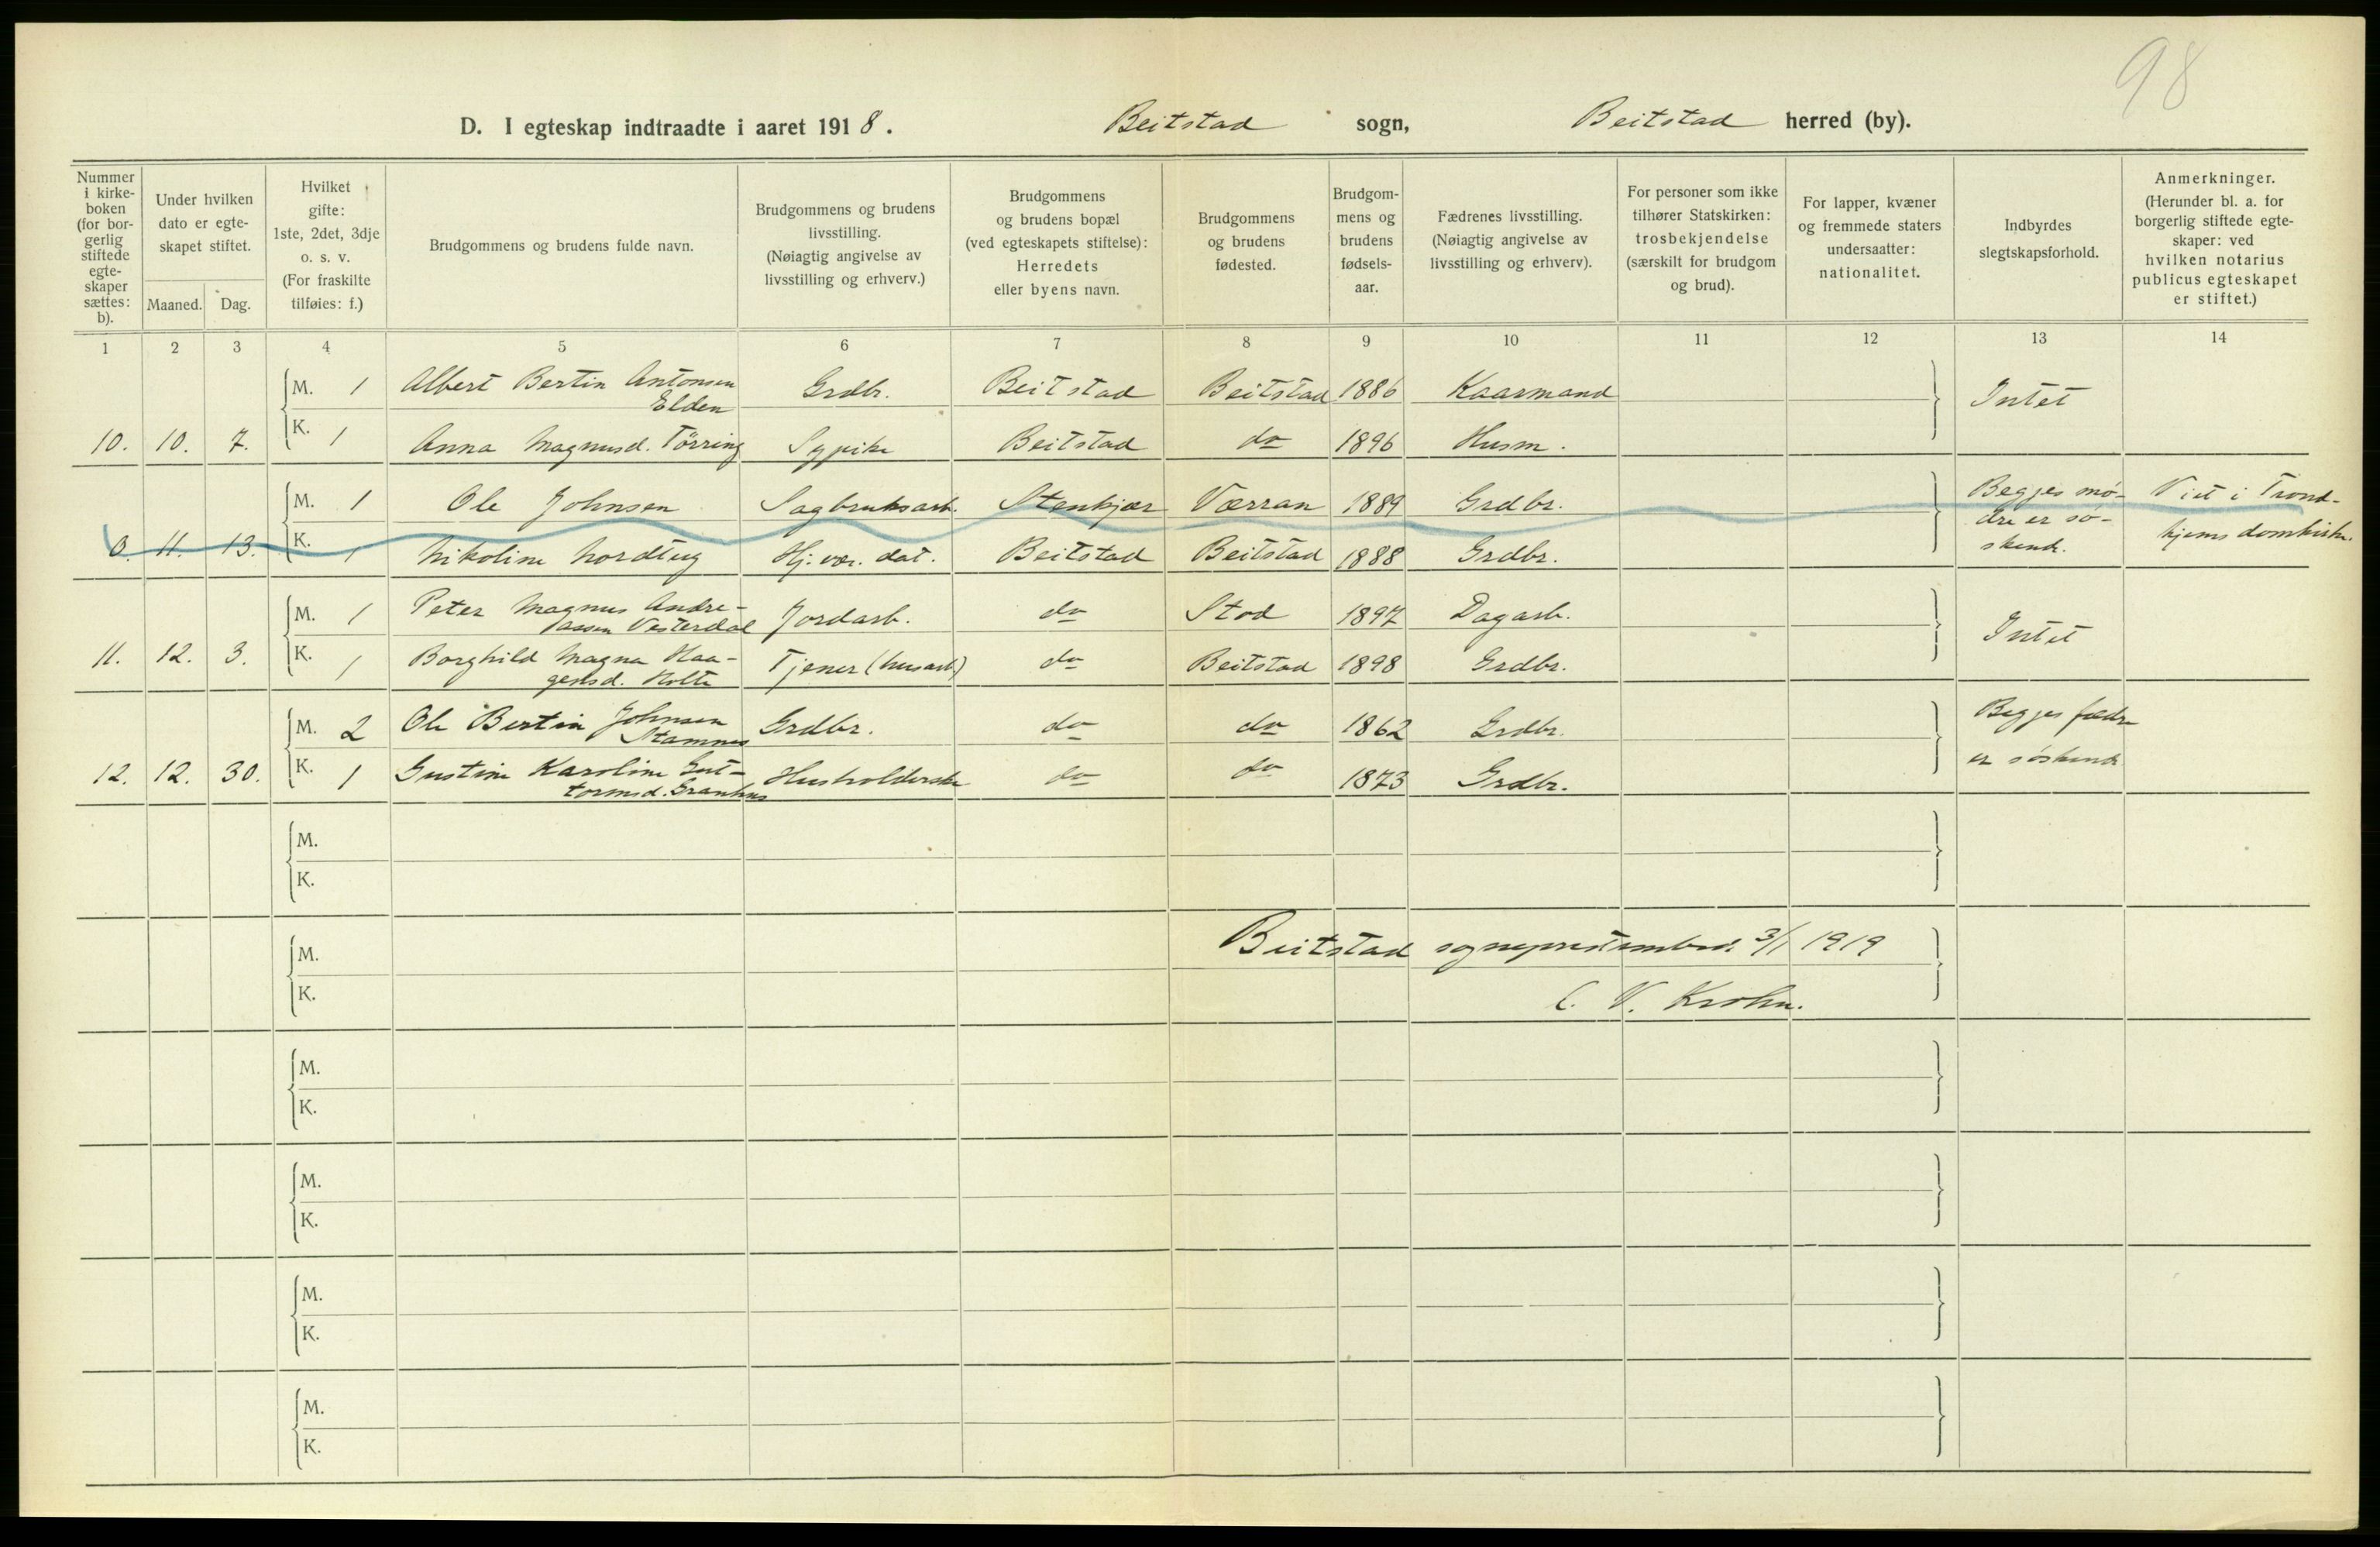 98
D. I egteskap indtraadte i aaret 1918. Beitstad sogn, Beitstad herred (by).
Nummer i kirke-boken (for bor-gerlig stiftede egte-skaper sættes: b).
Under hvilken dato er egte-skapet stiftet.
Maaned. Dag.
Hvilket gifte: 1ste, 2det, 3dje o. s. v. (For fraskilte tilføies: f.)
Brudgommens og brudens fulde navn.
Brudgommens og brudens livsstilling. (Nøiagtig angivelse av livsstilling og erhverv.)
Brudgommens og brudens bopæl (ved egteskapets stiftelse): Herredets eller byens navn.
Brudgommens og brudens fødested.
Brudgom-mens og brudens fødsels-aar.
Fædrenes livsstilling. (Nøiagtig angivelse av livsstilling og erhverv).
For personer som ikke tilhører Statskirken: trosbekjendelse (særskilt for brudgom og brud).
For lapper, kvæner og fremmede staters undersaatter: nationalitet.
Indbyrdes slegtskapsforhold.
Anmerkninger. (Herunder bl. a. for borgerlig stiftede egte-skaper: ved hvilken notarius publicus egteskapet er stiftet.)
1 2 3 4 5 6 7 8 9 10 11 12 13 14
M. 1 Albert Bertin Antonsen Elden Grdbr. Beitstad Beitstad 1886 Kaarmand Intet
10. 10. 7. K. 1 Anna Magnusd. Törring Sypike Beitstad do 1896 Husm.
M. 1 Ole Johnsen Sagbruksarb. Stenkjær Værran 1889 Grdbr. Begjes mö-dre er sö-skende. Viet i Trond-hjems domkirke.
0. 11. 13. K. 1 Nikoline Nordtug Hj. vær. dat. Beitstad Beitstad 1888 Grdbr.
M. 1 Peter Magnus Andre-assen Vesterdal Jordarb. do Stod 1897 Dagarb. Intet
11. 12. 3. K. 1 Borghild Magna Haa-gensd. Holte Tjener (husarb) do Beitstad 1898 Grdbr.
M. 2 Ole Bertin Johnsen Stamnes Grdbr. do do 1862 Grdbr. Begges fædre er söskende
12. 12. 30. K. 1 Gustine Karoline Gut-tormsd. Granhus Husholderske do do 1873 Grdbr.
M.
K.
M. Beitstad sogneprestembed 3/1 1919
K. C. V. Krohn.
M.
K.
M.
K.
M.
K.
M.
K.